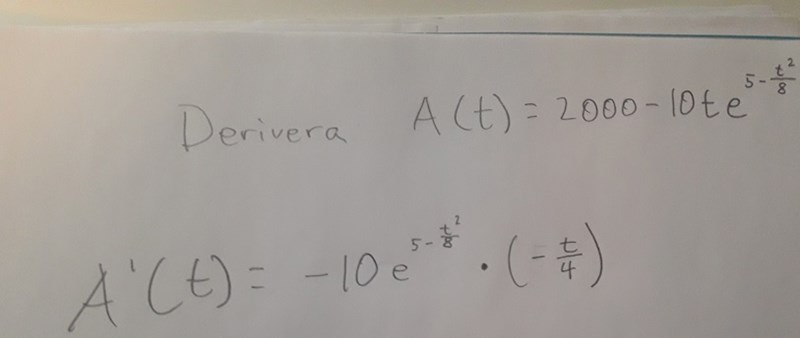 Derivera A(t) = 2000 - 10te^{5 - \frac{t^2}{8}}
A'(t) = -10e^{5 - \frac{t^2}{8}} · (-\frac{t}{4})